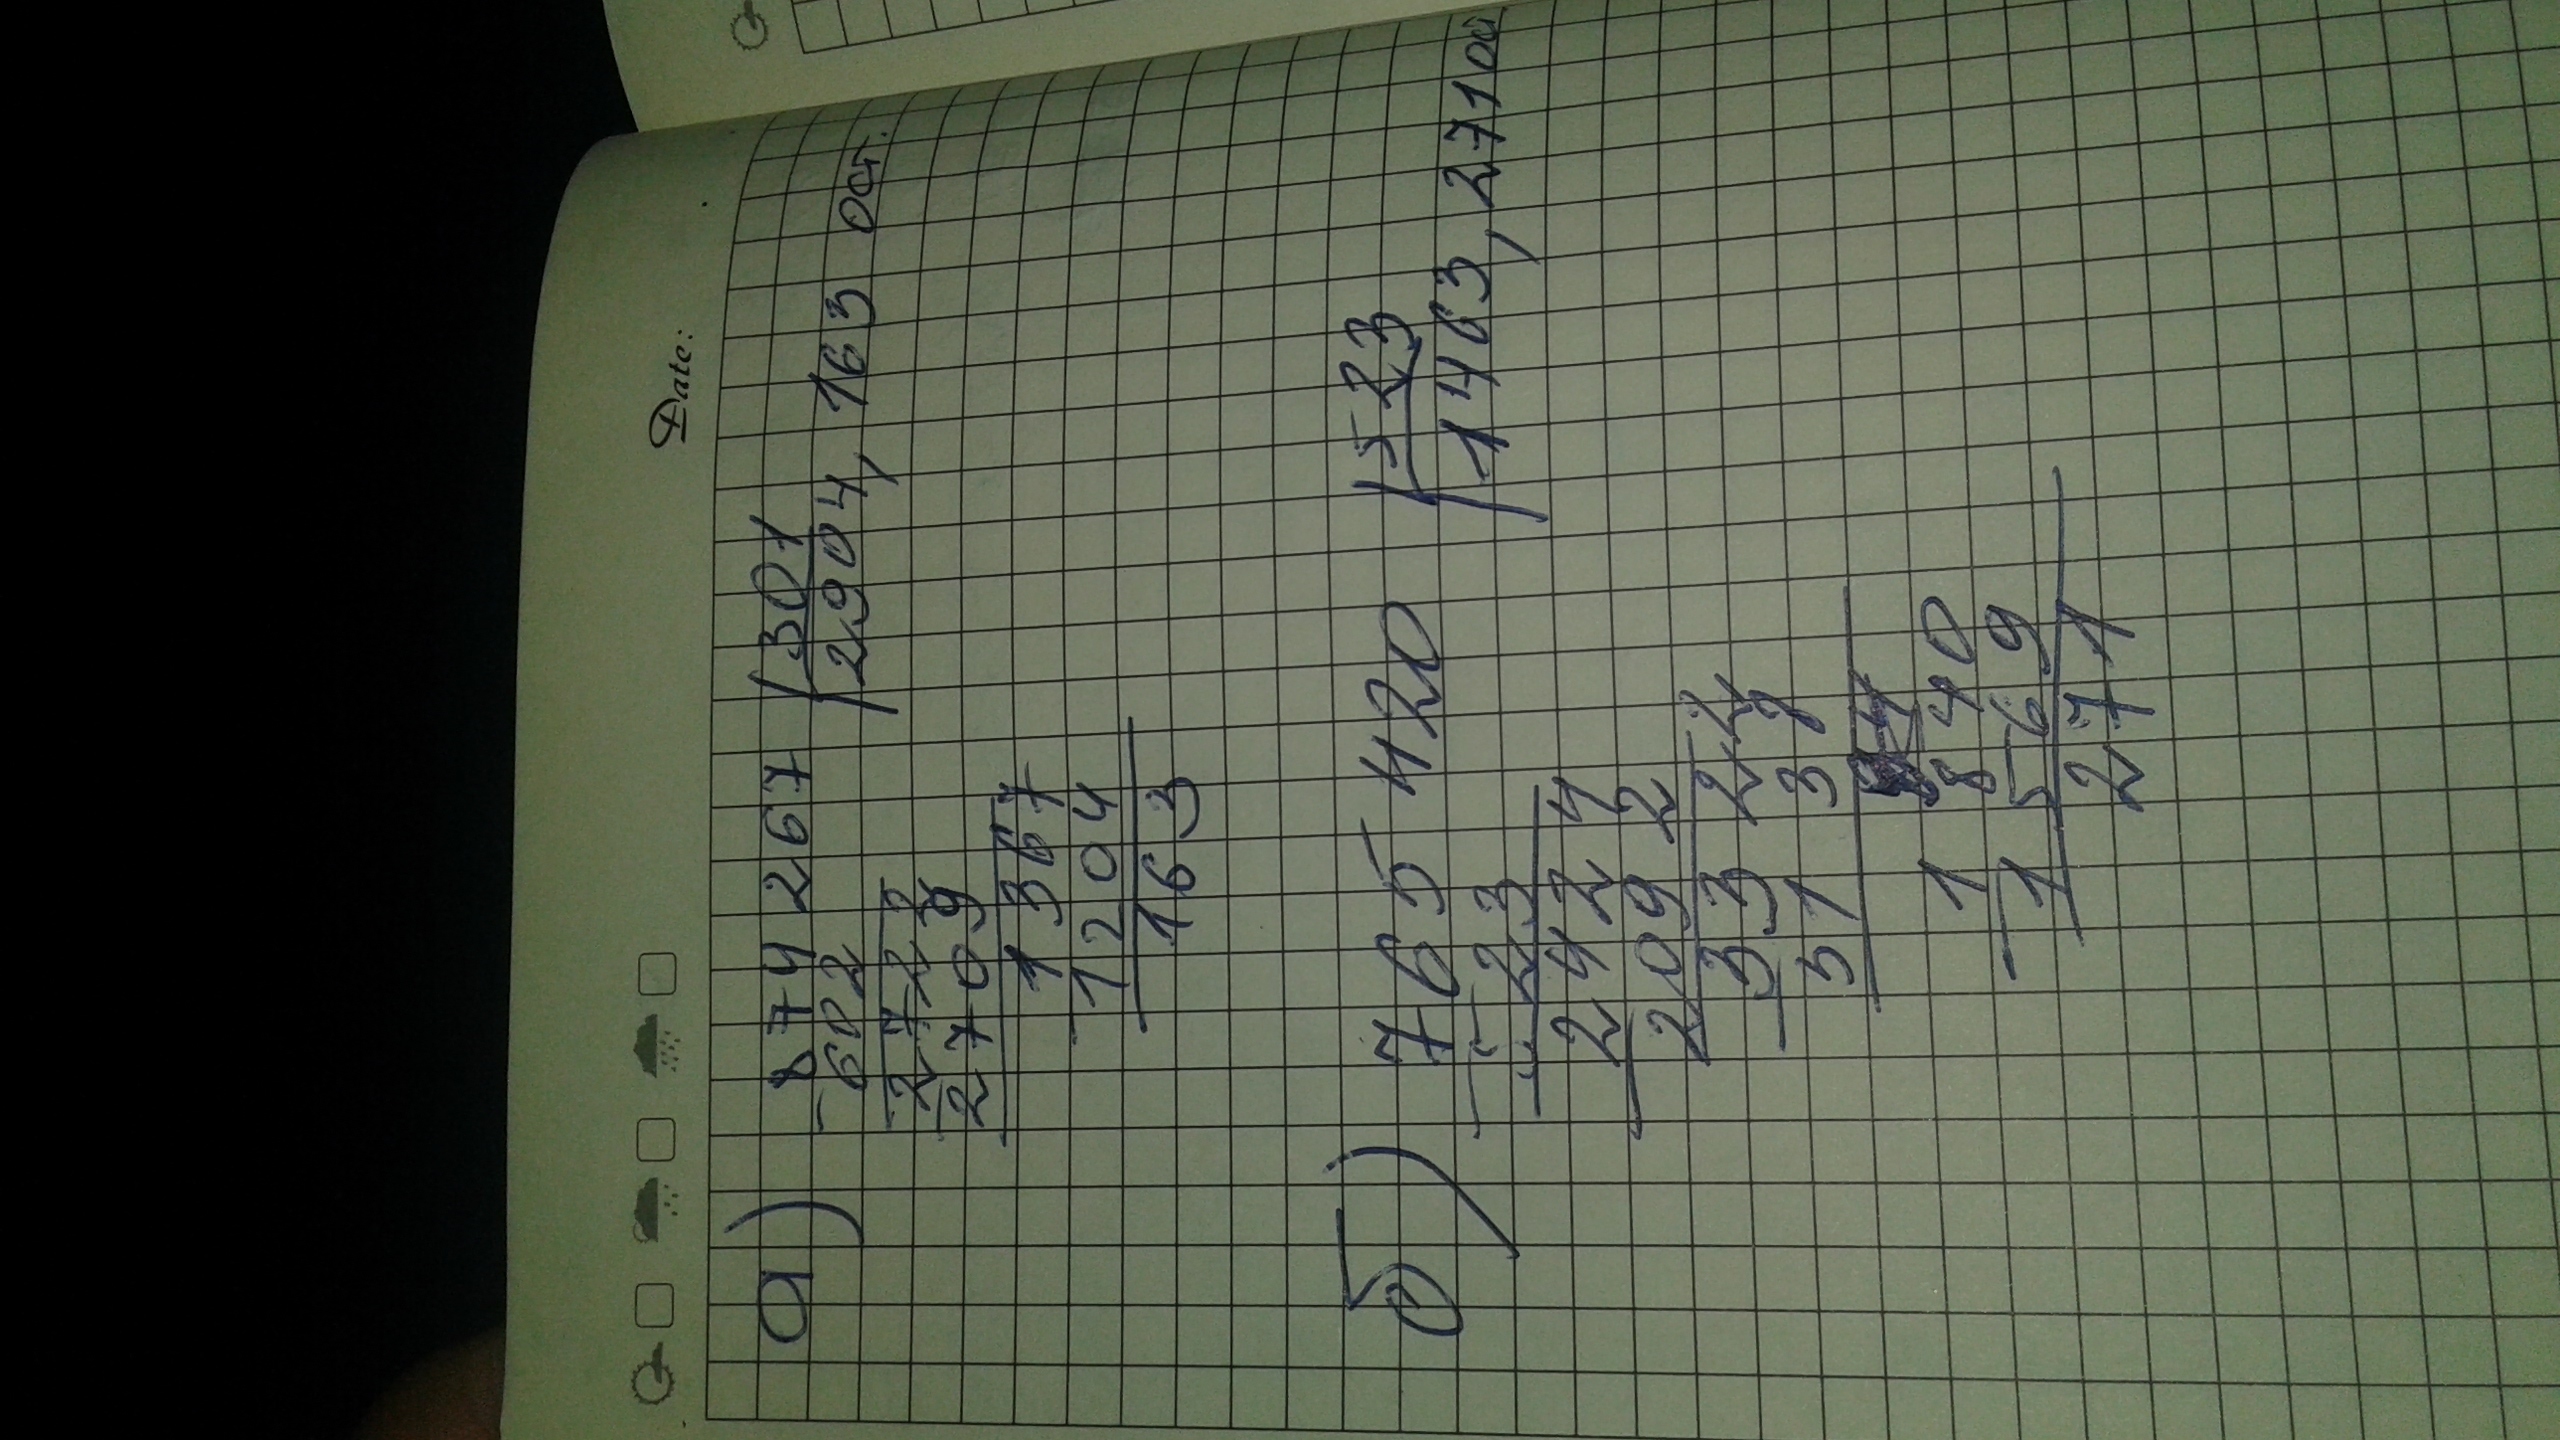 Date:
а) 874 267 | 301
- 602 2904, 163 ост.
2722
- 2709
1367
- 1204
163
б) 765 420 | 523
- 523 1463, 271 ос
2424
- 2092
332
- 3138
1840
- 1569
271